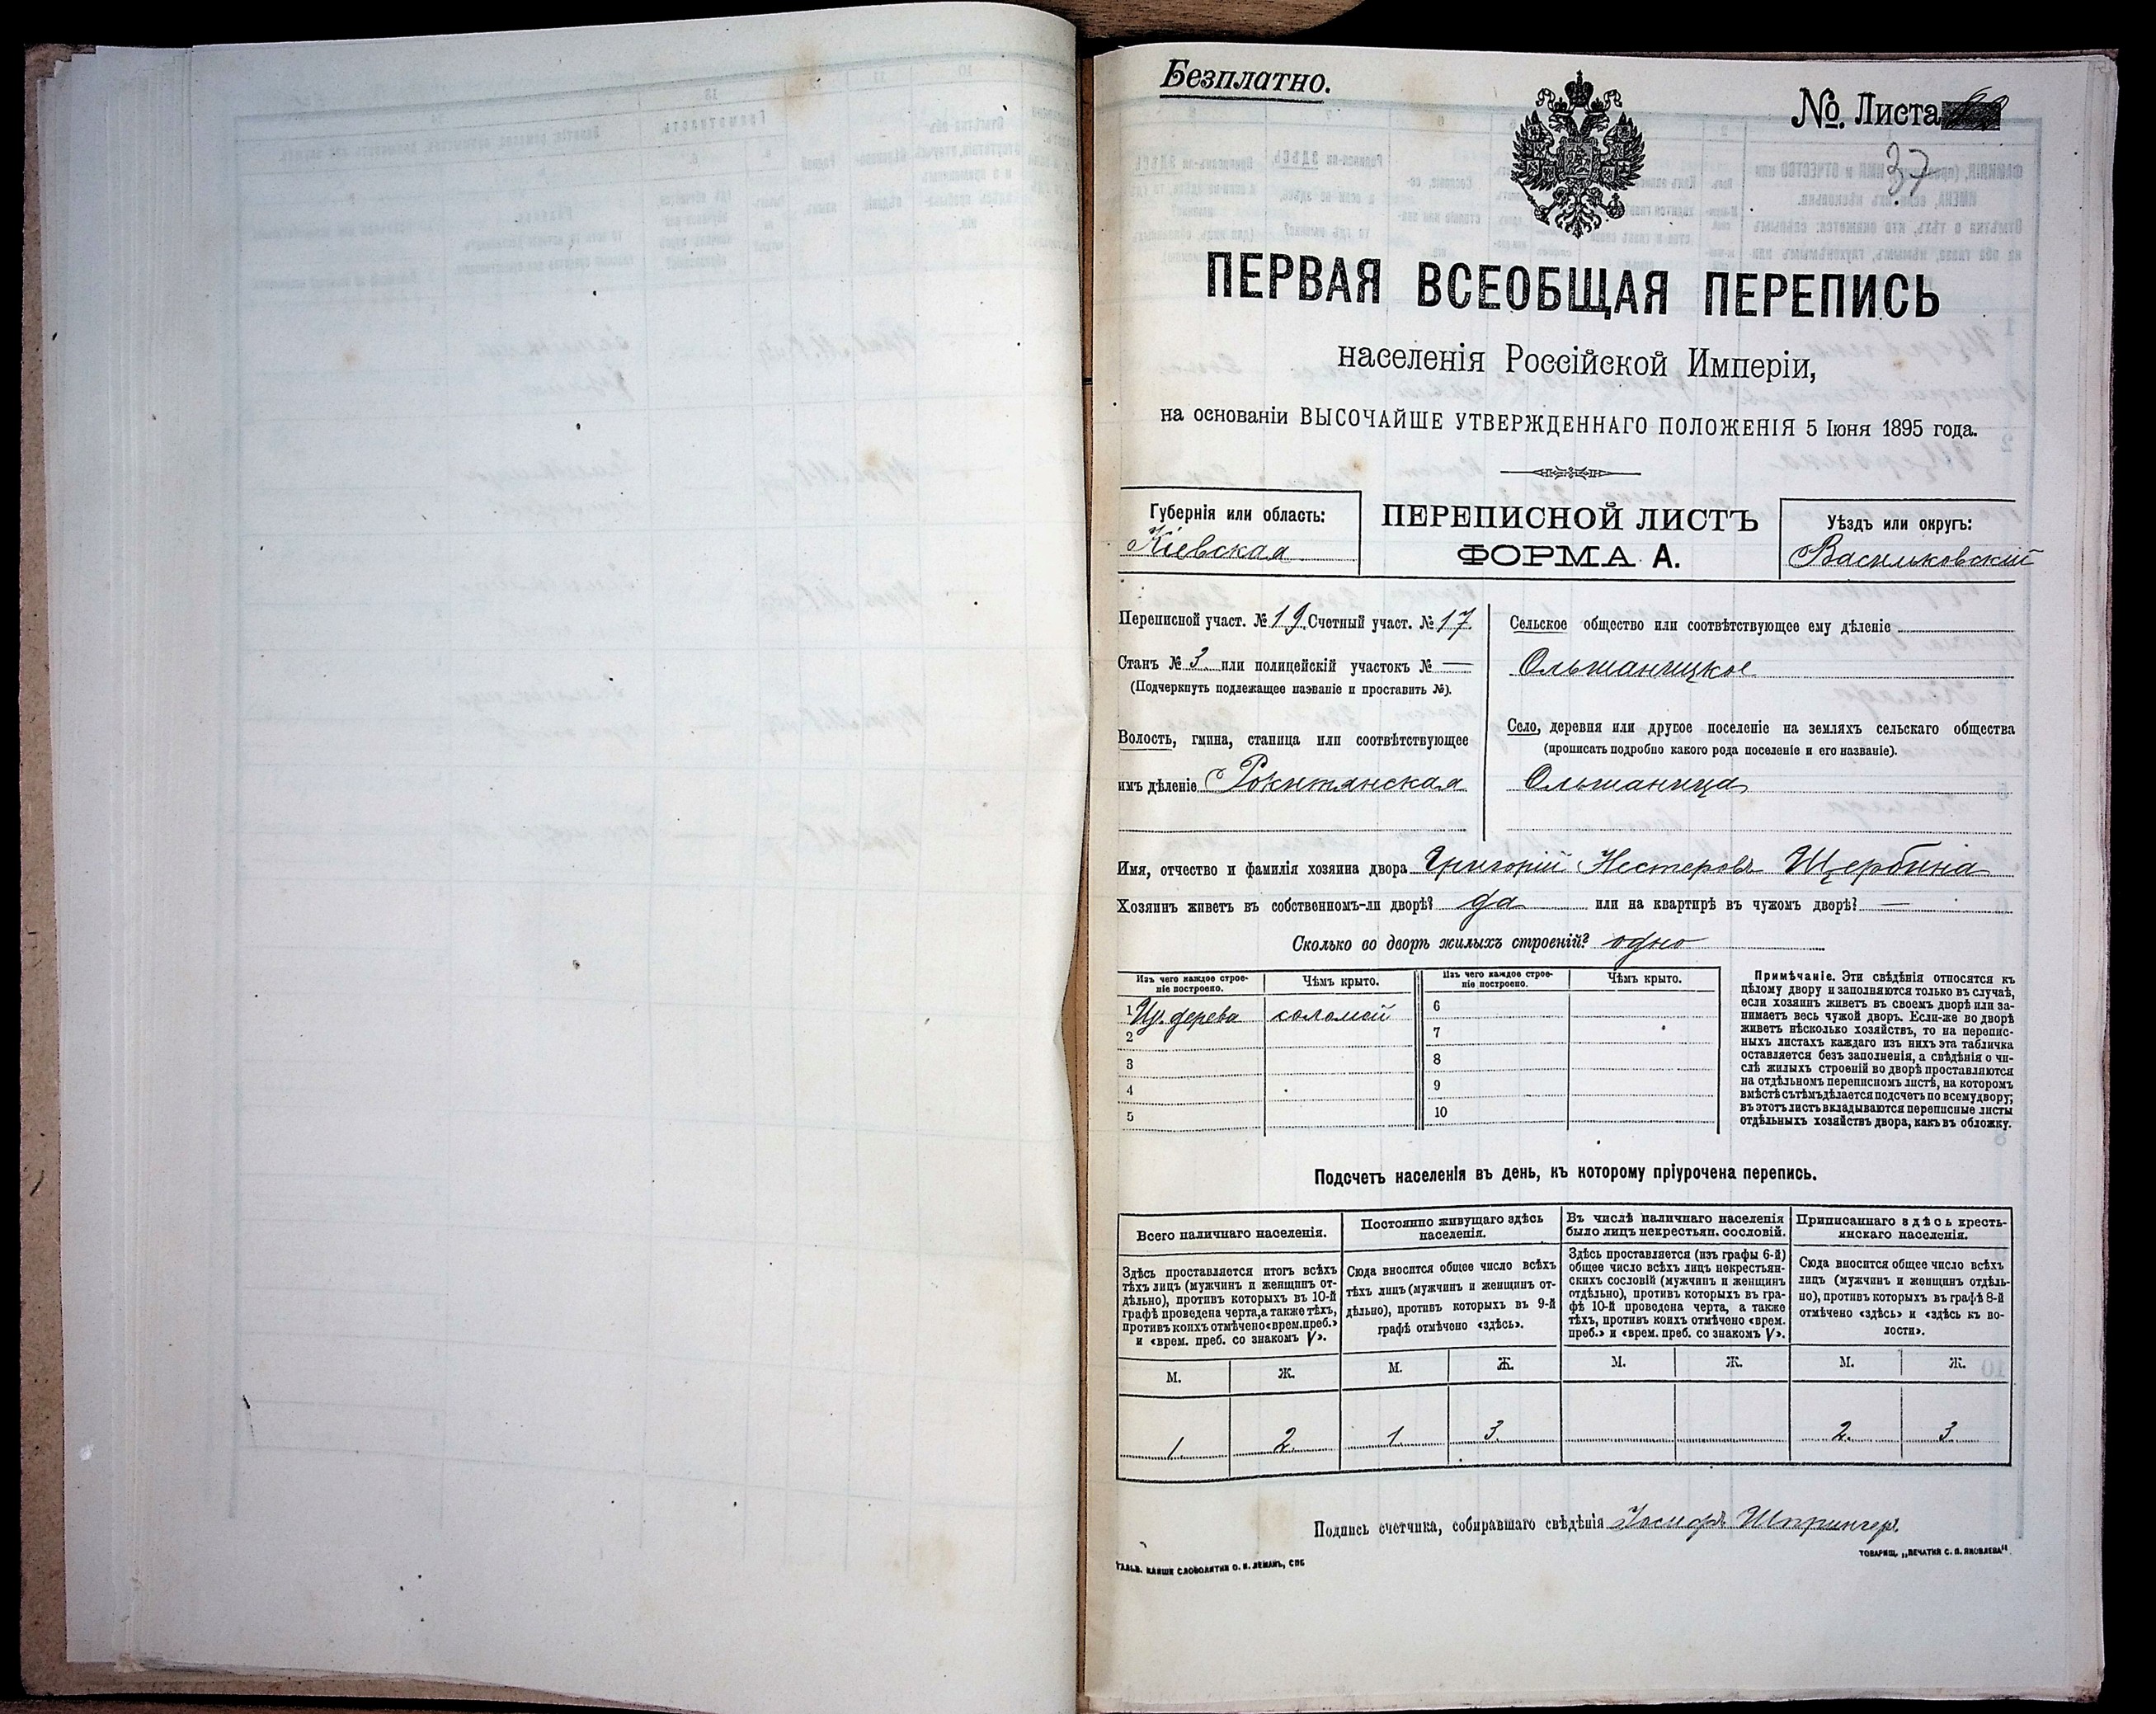 Безплатно.
№ Листа
37
ПЕРВАЯ ВСЕОБЩАЯ ПЕРЕПИСЬ
населенія Россійской Имперіи,
на основаніи ВЫСОЧАЙШЕ УТВЕРЖДЕННАГО ПОЛОЖЕНІЯ 5 Іюня 1895 года.
Губернія или область:
Кіевская
ПЕРЕПИСНОЙ ЛИСТЪ
ФОРМА А.
Уѣздъ или округъ:
Васильковскій
Переписной участ. № 19. Счетный участ. № 17.
Станъ № 3 или полицейскій участокъ № —
(Подчеркнуть подлежащее названіе и проставить №).
Волость, гмина, станица или соотвѣтствующее
имъ дѣленіе Рокитянская
Сельское общество или соотвѣтствующее ему дѣленіе
Ольшаницкое
Село, деревня или другое поселеніе на земляхъ сельскаго общества
(прописать подробно какого рода поселеніе и его названіе).
Ольшаница
Имя, отчество и фамилія хозяина двора Григорій Нестеровъ Щербина
Хозяинъ живетъ въ собственномъ-ли дворѣ? да или на квартирѣ въ чужомъ дворѣ? —
Сколько во дворѣ жилыхъ строеній? одно
Изъ чего каждое строе-
ніе построено.
Чѣмъ крыто.
Изъ чего каждое строе-
ніе построено.
Чѣмъ крыто.
1 Из. дерева соломой 6
2 7
3 8
4 9
5 10
Примѣчаніе. Эти свѣдѣнія относятся къ
цѣлому двору и заполняются только въ случаѣ,
если хозяинъ живетъ въ своемъ дворѣ или за-
нимаетъ весь чужой дворъ. Если-же во дворѣ
живетъ нѣсколько хозяйствъ, то на перепис-
ныхъ листахъ каждаго изъ нихъ эта табличка
оставляется безъ заполненія, а свѣдѣнія о чи-
слѣ жилыхъ строеній во дворѣ проставляются
на отдѣльномъ переписномъ листѣ, на которомъ
вмѣстѣ съ тѣмъ дѣлается подсчетъ по всему двору;
въ этотъ листъ вкладываются переписные листы
отдѣльныхъ хозяйствъ двора, какъ въ обложку.
Подсчетъ населенія въ день, къ которому пріурочена перепись.
Всего наличнаго населенія.
Здѣсь проставляется итогъ всѣхъ
тѣхъ лицъ (мужчинъ и женщинъ от-
дѣльно), противъ которыхъ въ 10-й
графѣ проведена черта, а также тѣхъ,
противъ коихъ отмѣчено «врем. преб.»
и «врем. преб. со знакомъ V».
Постоянно живущаго здѣсь
населенія.
Сюда вносится общее число всѣхъ
тѣхъ лицъ (мужчинъ и женщинъ от-
дѣльно), противъ которыхъ въ 9-й
графѣ отмѣчено «здѣсь».
Въ числѣ наличнаго населенія
было лицъ некрестьян. сословій.
Здѣсь проставляется (изъ графы 6-й)
общее число всѣхъ лицъ некрестьян-
скихъ сословій (мужчинъ и женщинъ
отдѣльно), противъ которыхъ въ гра-
фѣ 10-й проведена черта, а также
тѣхъ, противъ коихъ отмѣчено «врем.
преб.» и «врем. преб. со знакомъ V».
Приписаннаго здѣсь кресть-
янскаго населенія.
Сюда вносится общее число всѣхъ
лицъ (мужчинъ и женщинъ отдѣль-
но), противъ которыхъ въ графѣ 8-й
отмѣчено «здѣсь» и «здѣсь къ во-
лости».
М. Ж. М. Ж. М. Ж. М. Ж.
1 2 1 3 2 3
Подпись счетчика, собиравшаго свѣдѣнія Іосифъ Шпрингеръ.
ТОВАРИЩ. „ПЕЧАТНЯ С. П. ЯКОВЛЕВА"